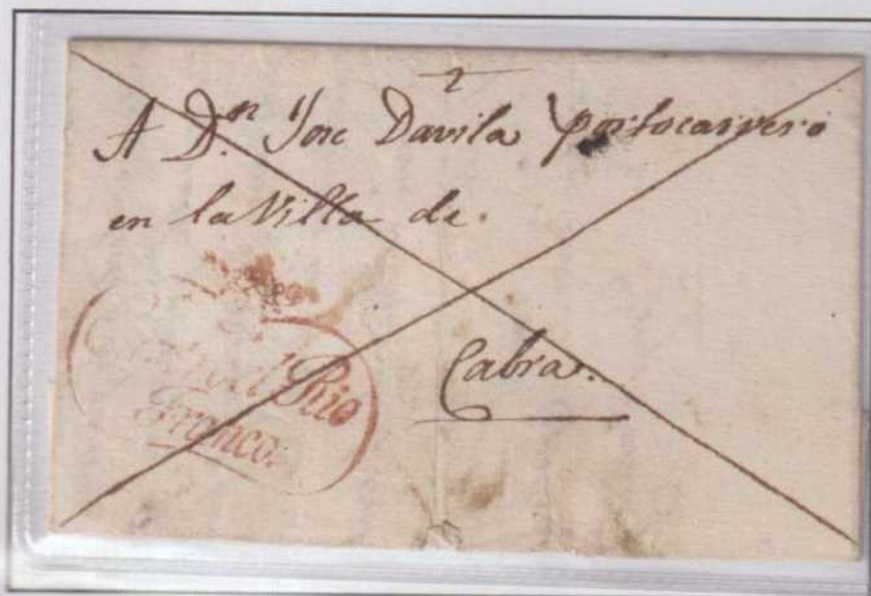 2
A D.ⁿ Jose Davila portocarrero
en la Villa de.
Cabra.
Rio
Franco.